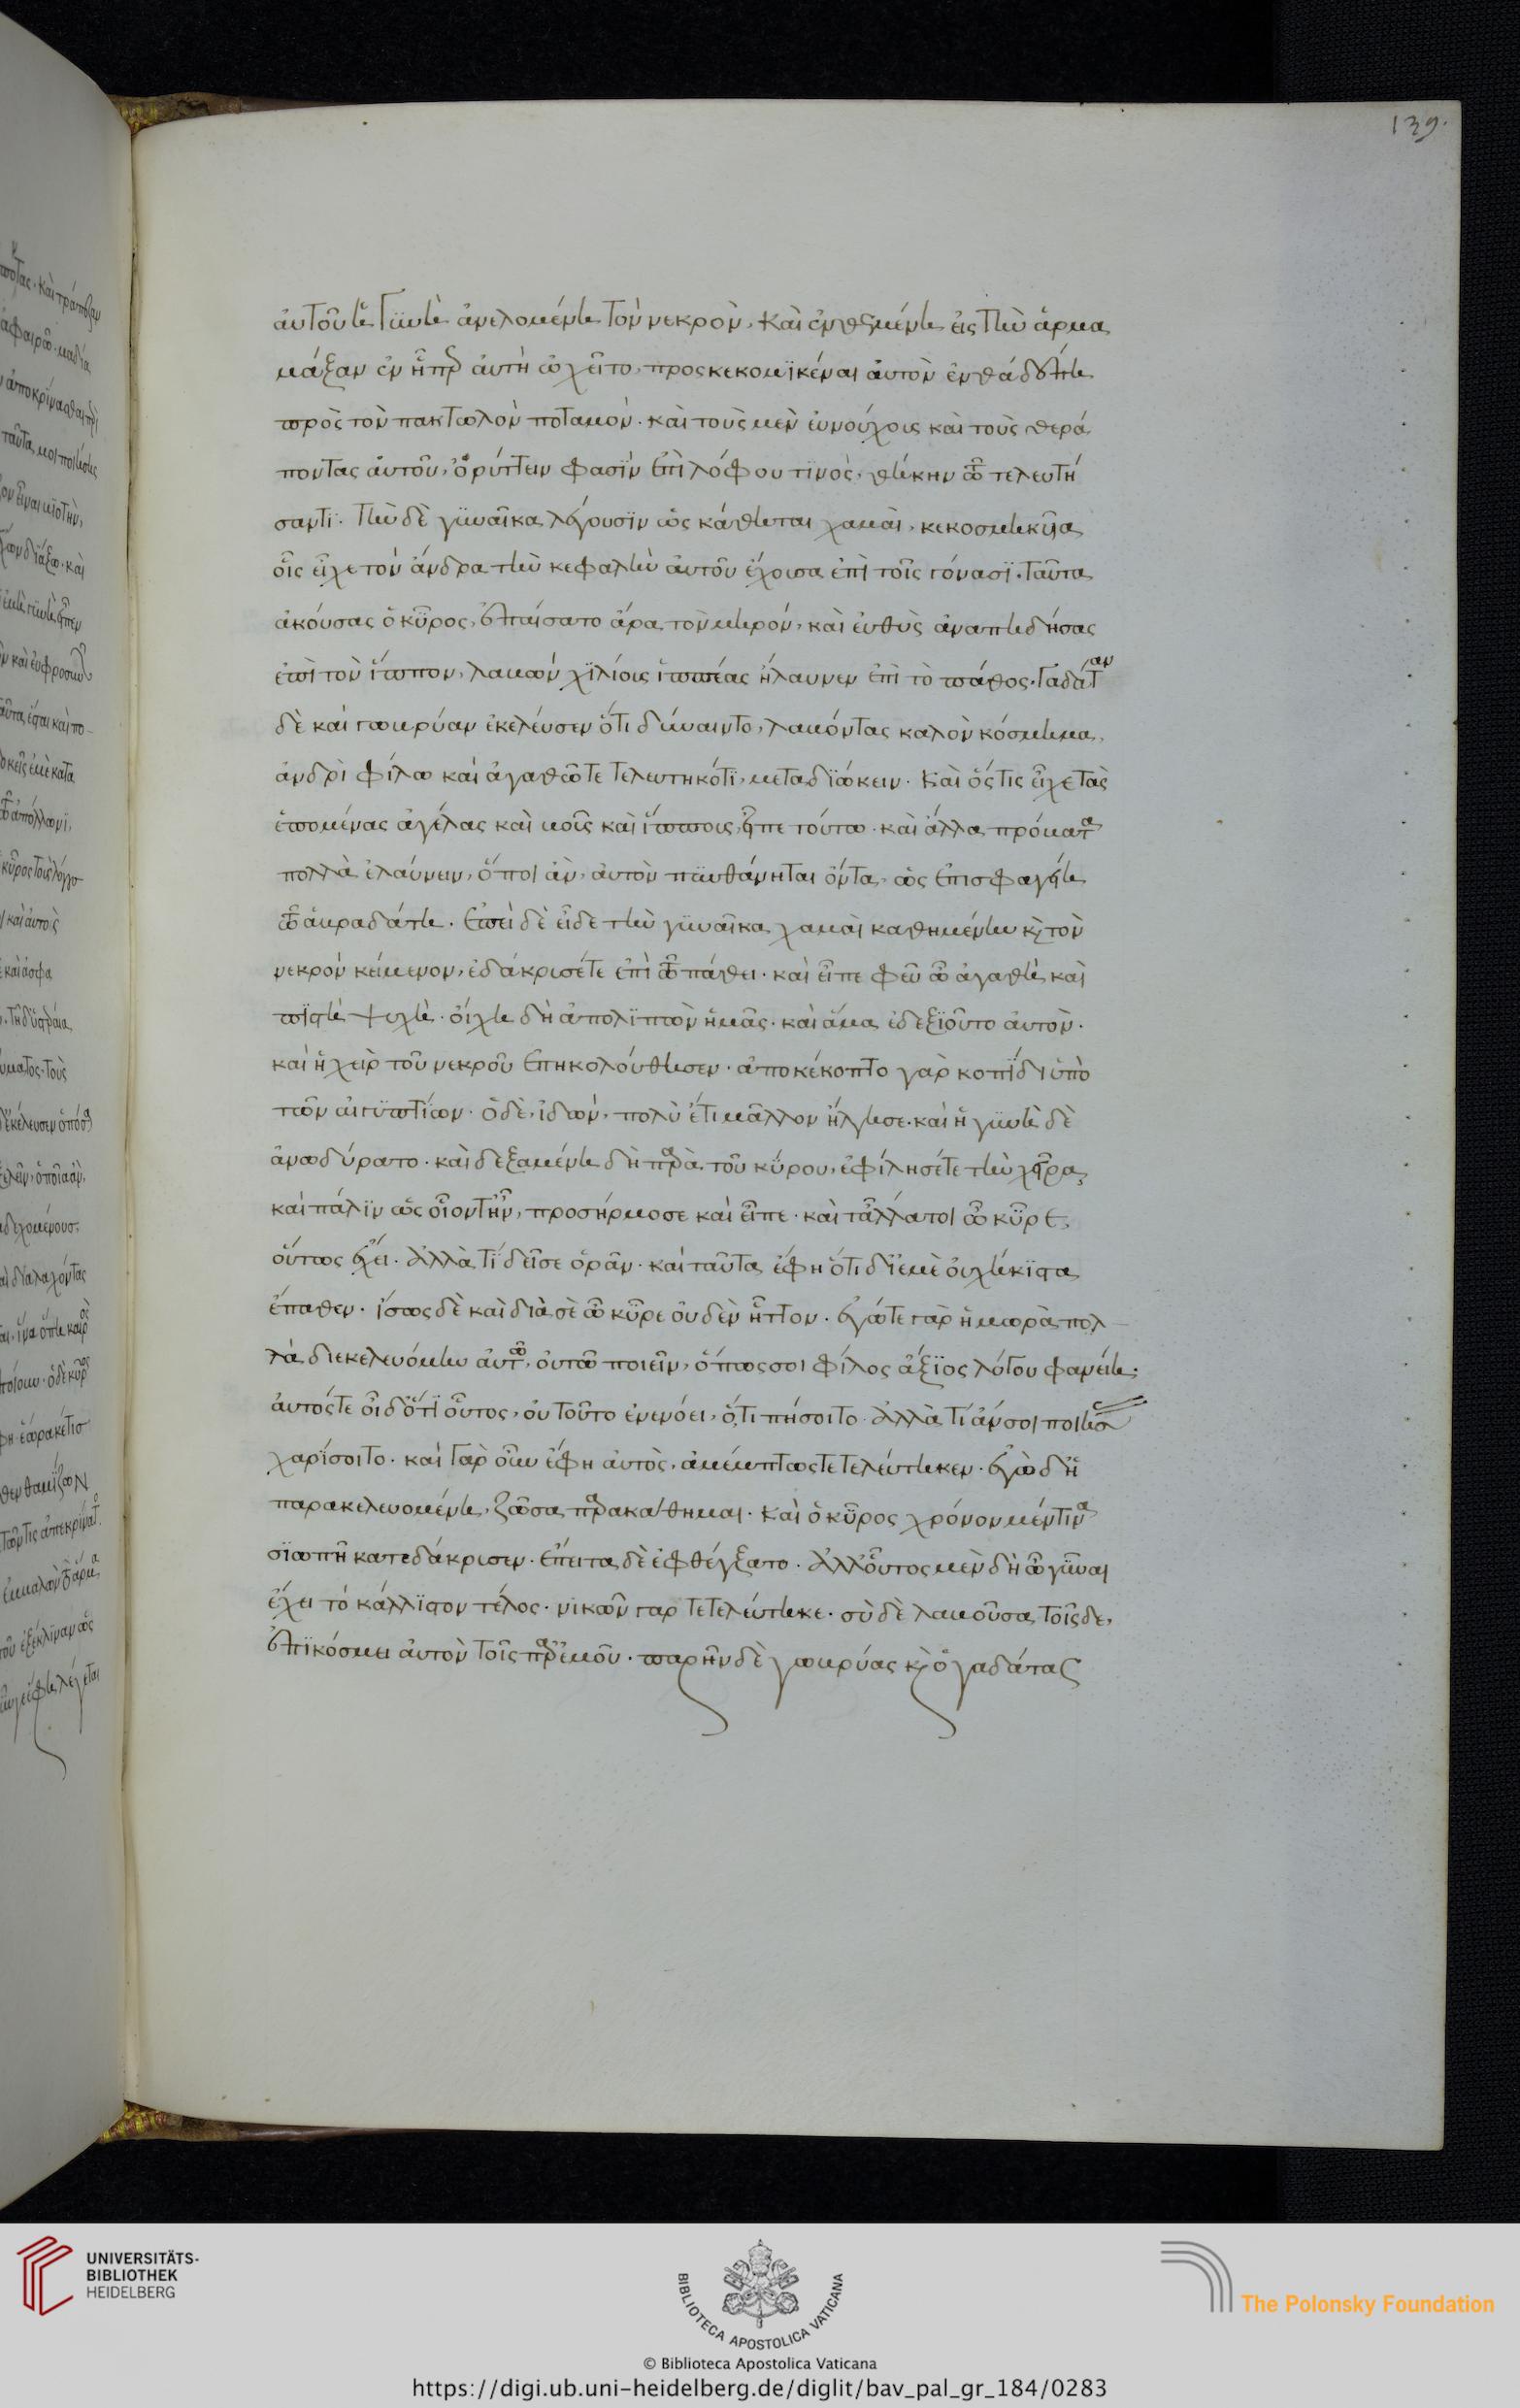 139.
αὐτοῦ ἡ γϋνὴ ἀνελομένη τὸν νεκρὸν, καὶ ἐνθεμένη εἰς τὴν ἁρμα
μάξαν ἐν ᾗπερ αὐτὴ ὠχεῖτο, προσκεκομϊκέναι αὐτὸν ἐνθάδε πη
πρὸς τὸν πακτωλὸν ποταμόν. καὶ τοὺς μὲν εὐνούχοις καὶ τοὺς θερά
ποντας αὐτοῦ, ὀρύττειν φασὶν ἐπὶ λόφου τϊνὸς, θήκην τῶ τελευτή
σαντϊ. τὴν δὲ γϋναῖκα λέγουσϊν ὡς κάθηται χαμαὶ, κεκοσμηκυῖα
οἷς εἶχε τὸν ἄνδρα τὴν κεφαλὴν αὐτοῦ ἔχοισα ἐπὶ τοῖς γόνασϊ. ταῦτα
ἀκούσας ὁ κῦρος, ἐπαίσατο ἄρα τὸν μηρόν, καὶ εὐθὺς ἀναπηδήσας
ἐπὶ τὸν ἵππον, λαβὼν χϊλίοις ἱππέας ἤλαυνεν ἐπὶ τὸ πάθος. γαδάταν
δὲ καὶ γωβρύαν ἐκελεύσεν ὅτι δύναιντο, λαβόντας καλὸν κόσμημα,
ἀνδρὶ φίλω καὶ ἀγαθῶ τετελευτηκότϊ, μεταδϊώκειν. καὶ ὅς τις εἶχε τὰς
ἑπομένας ἀγέλας καὶ βοῖς καὶ ἵπποις, εἶπε τούτω. καὶ ἄλλα πρόβατα
πολλὰ ἐλαύνειν, ὅποι ἂν, αὐτὸν πϋνθάνηται ὄντα, ὡς ἐπισφαγείη
τῶ ἀβραδάτη. ἐπεὶ δὲ εἶδε τὴν γϋναῖκα χαμαὶ καθημένην κ(αὶ) τὸν
νεκρόν κείμενον, ἐδάκρισέ τε ἐπὶ τῶ πάθει. καὶ εἶπε φεῦ ὦ ἀγαθὴ καὶ
πϊστὴ ψυχὴ. οἴχη δὴ ἀπολϊπὼν ἡμᾶς. καὶ ἅμα ἐδεξϊοῦτο αὐτὸν.
καὶ ἡ χεὶρ τοῦ νεκροῦ ἐπηκολούθησεν. ἀποκέκοπτο γὰρ κοπΐδι ὑπὸ
τῶν αἰγϋπτίων. ὁ δὲ, ἰδὼν, πολὺ ἔτι μᾶλλον ἤλγησε. καὶ ἡ γϋνὴ δὲ
ἀνωδύρατο. καὶ δεξαμένη δὴ παρὰ τοῦ κύρου, ἐφίλησέ τε τὴν χεῖρα,
καὶ πάλϊν ὡς οἷον τ' ἦν, προσήρμοσε καὶ εἶπε. καὶ τἆλλά τοι ὦ κῦρε,
οὕτως ἔχει. ἀλλὰ τί δεῖ σε ὁρᾶν. καὶ ταῦτα ἔφη ὅτι δι' ἐμὲ οὐχ ἥκϊστα
ἔπαθεν. ἴσως δὲ καὶ διὰ σὲ ὦ κῦρε οὐδὲν ἧττον. ἐγώ τε γὰρ ἡ μωρὰ πολ
λὰ διεκελευόμην αὐτῶ, οὐτῶ ποιεῖν, ὅπως σοι φίλος ἄξϊος λόγου φανείη.
αὐτός τε οἶδ' ὅτϊ οὗτος, οὐ τοῦτο ἐνενόει, ὅ, τι πήσοιτο. ἀλλὰ τί ἄν σοι ποιήσας
χαρΐσοιτο. καὶ γὰρ οὖν ἔφη αὐτὸς, ἀμέμπτως τετελεύτηκεν. ἐγὼ δ' ἡ
παρακελευομένη, ζῶσα παρακάθημαι. καὶ ὁ κῦρος χρόνον μέν τινα
σϊωπῆ κατεδάκρισεν. ἔπειτα δὲ ἐφθέγξατο. ἀλλ' οὗτος μὲν δὴ ὦ γῦναι
ἔχει τὸ κάλλϊστον τέλος. νικῶν γαρ τετελεύτηκε. σὺ δὲ λαβοῦσα τοῖσδε,
ἐπϊκόσμει αὐτὸν τοῖς παρ' ἐμοῦ. παρῆν δὲ γωβρύας κ(αὶ) ὁ γαδάτας
UNIVERSITÄTS-
BIBLIOTHEK
HEIDELBERG
BIBLIOTECA APOSTOLICA VATICANA
The Polonsky Foundation
© Biblioteca Apostolica Vaticana
https://digi.ub.uni-heidelberg.de/diglit/bav_pal_gr_184/0283